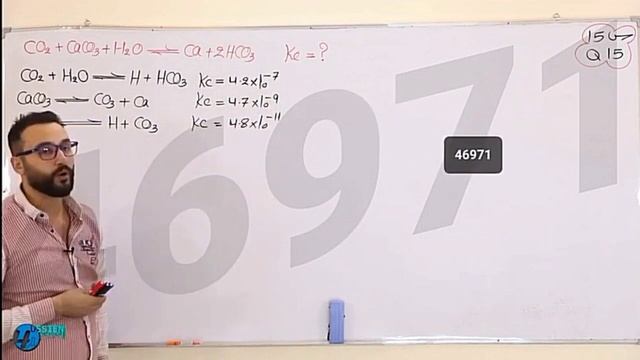 CO₂ + CaCO₃ + H₂O ⇌ Ca + 2HCO₃ Kc = ?
15
Q 15
CO₂ + H₂O ⇌ H + HCO₃ Kc = 4.2×10⁻⁷
CaCO₃ ⇌ CO₃ + Ca Kc = 4.7×10⁻⁹
⇌ H + CO₃ Kc = 4.8×10⁻¹¹
46971
46971
OSSIEN